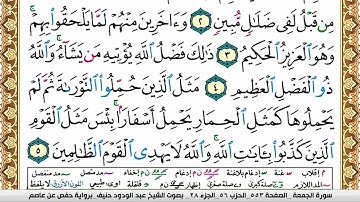 مِن قَبْلُ لَفِى ضَلَٰلٍ مُّبِينٍ ٢ وَءَاخَرِينَ مِنْهُمْ لَمَّا يَلْحَقُوا۟ بِهِمْ
وَهُوَ ٱلْعَزِيزُ ٱلْحَكِيمُ ٣ ذَٰلِكَ فَضْلُ ٱللَّهِ يُؤْتِيهِ مَن يَشَآءُ ۚ وَٱللَّهُ
ذُو ٱلْفَضْلِ ٱلْعَظِيمِ ٤ مَثَلُ ٱلَّذِينَ حُمِّلُوا۟ ٱلتَّوْرَىٰةَ ثُمَّ لَمْ
يَحْمِلُوهَا كَمَثَلِ ٱلْحِمَارِ يَحْمِلُ أَسْفَارًۢا ۚ بِئْسَ مَثَلُ ٱلْقَوْمِ
ٱلَّذِينَ كَذَّبُوا۟ بِـَٔايَٰتِ ٱللَّهِ ۚ وَٱللَّهُ لَا يَهْدِى ٱلْقَوْمَ ٱلظَّٰلِمِينَ ٥
سورة الجمعة الصفحة ٥٥٣ الحزب ٥٦ الجزء ٢٨ بصوت الشيخ عبد الودود حنيف برواية حفص عن عاصم